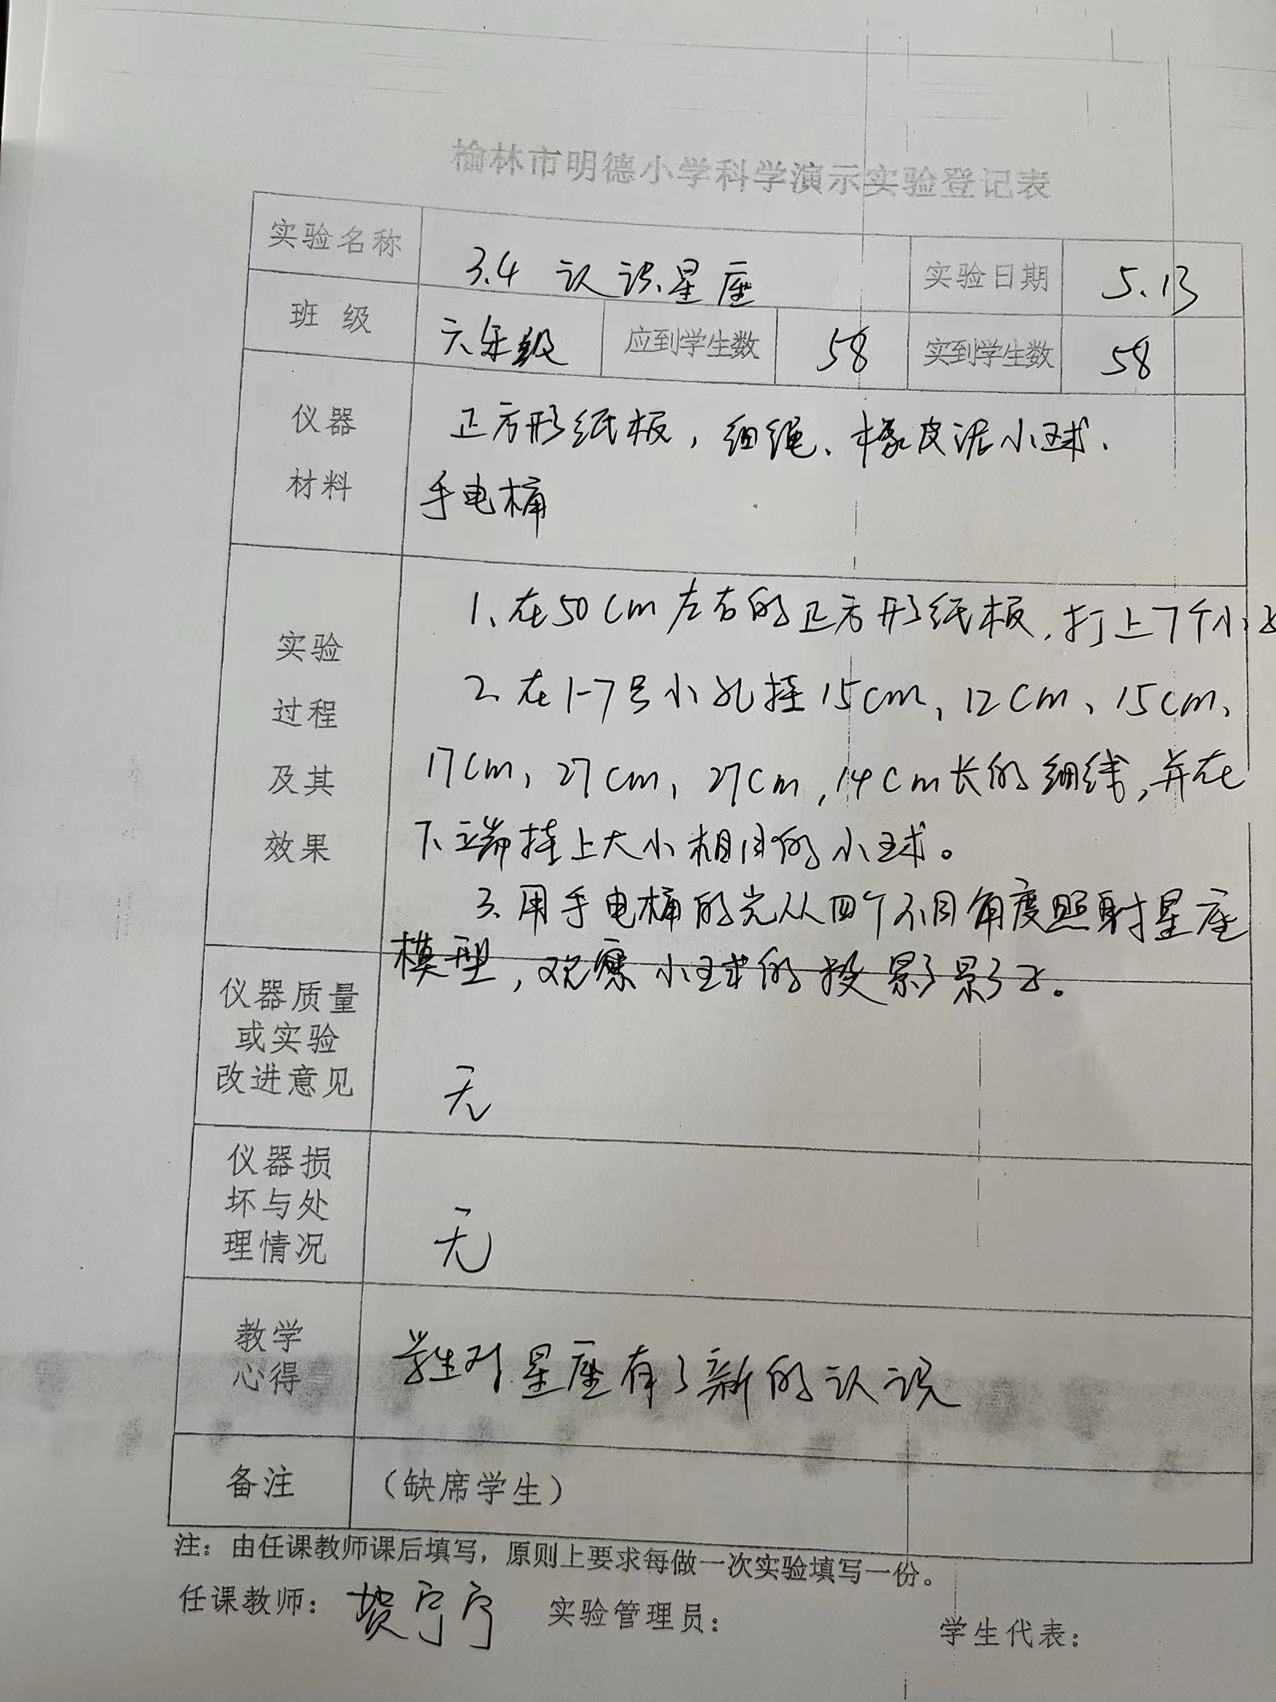 榆林市明德小学科学演示实验登记表
实验名称 3.4 认识星座 实验日期 5.13
班 级 六年级 应到学生数 58 实到学生数 58
仪器 正方形纸板，细绳、橡皮泥小球、
材料 手电桶
1、在50Cm左右的正方形纸板，打上7个小
实验
2、在1-7号小孔挂15cm、12cm、15cm、
过程
17cm、27cm、27cm，14cm长的细线，并在
及其
下端挂上大小相同的小球。
效果
3、用手电桶的光从四个不同角度照射星座
模型，观察小球的投影影子。
仪器质量
或实验
改进意见 无
仪器损
坏与处
理情况 无
教学
心得 学生对星座有了新的认识
备注 （缺席学生）
注：由任课教师课后填写，原则上要求每做一次实验填写一份。
任课教师：贺宁宁 实验管理员： 学生代表：